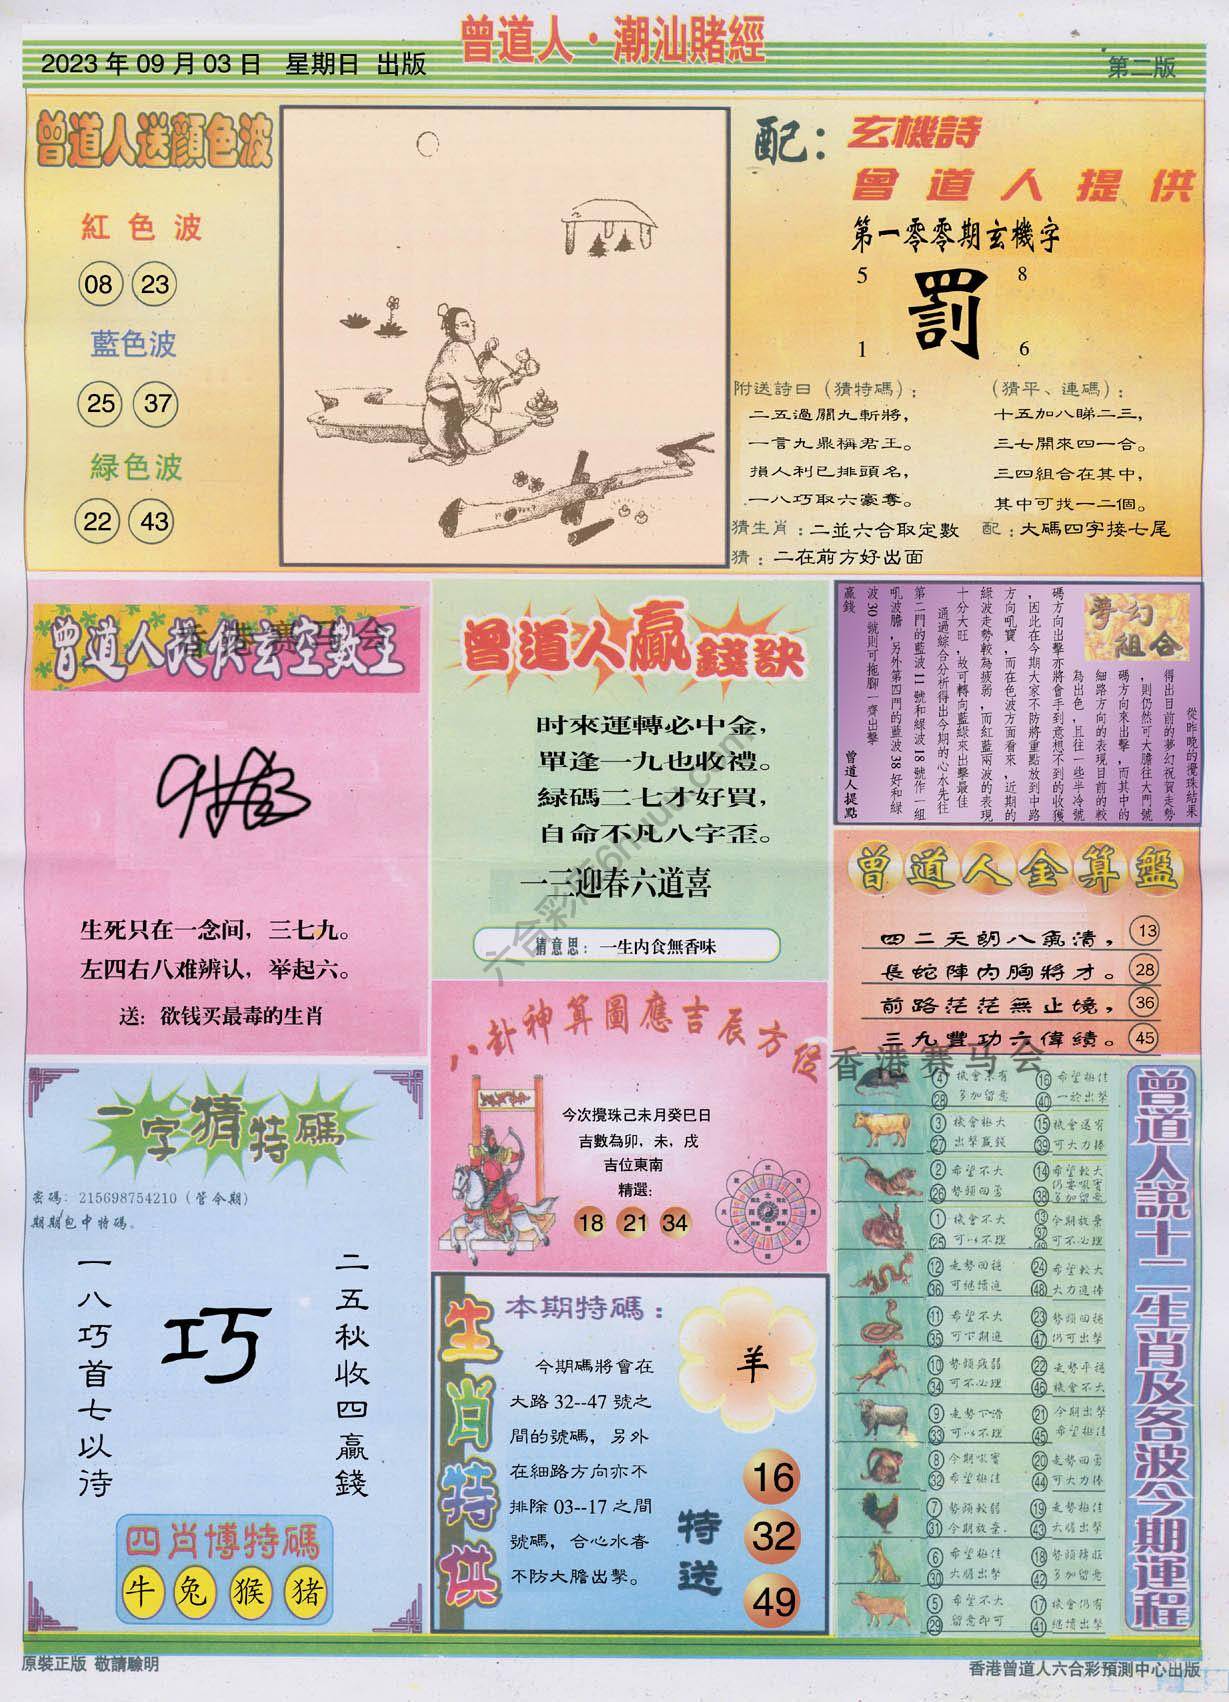 曾道人·潮汕賭經
2023年09月03日 星期日 出版
第二版
曾道人送顏色波
紅色波
08 23
藍色波
25 37
緑色波
22 43
配：
玄機詩
曾道人提供
第一零零期玄機字
5 8
罰
1 6
附送詩曰（猜特碼）：
二五過關九斬將，
一言九鼎稱君王。
損人利已排頭名，
一八巧取六豪奪。
（猜平、連碼）：
十五加八睇二三，
三七開來四一合。
三四組合在其中，
其中可找一二個。
猜生肖：二並六合取定數
配：大碼四字接七尾
猜：二在前方好出面
曾道人提供玄空數王
香港赛马会
生死只在一念间，三七九。
左四右八难辨认，举起六。
送：欲钱买最毒的生肖
曾道人贏錢訣
时來運轉必中金，
單逢一九也收禮。
緑碼二七才好買，
自命不凡八字歪。
一三迎春六道喜
猜意思：一生内食無香味
夢幻組合
從昨晚的攪珠結果
得出目前的夢幻祝賀走勢
，則仍然可大膽往大門號
碼方向來出擊，而其中的
細路方向的表現目前的較
為出色，且往一些半冷號
碼方向出擊亦將會手到意想不到的收獲
，因此在今期大家不防將重點放到中路
方向吼寶，而在色波方面看來，近期的
綠波走勢較為疲弱，而紅藍兩波的表現
十分大旺，故可轉向藍綠來出擊最佳
通過綜合分析得出今期的心水先往
第二門的藍波11號和綠波18號作一組
吼波膽，另外第四門的藍波38好和綠
波30號則可拖腳一齊出擊
曾道人提點
贏錢
曾道人金算盤
四二天朗八氣清， 13
長蛇陣内胸將才。 28
前路茫茫無止境， 36
三九豐功六偉績。 45
香港赛马会
八卦神算圖應吉辰方位
今次攪珠己未月癸巳日
吉數為卯，未，戌
吉位東南
精選：
18 21 34
一字猜特碼
密碼：215698754210（管令期）
期期包中特碼。
二五秋收四贏錢
巧
一八巧首七以待
四肖博特碼
牛 兔 猴 猪
生肖特供
本期特碼：
今期碼將會在
大路32--47號之
間的號碼，另外
在細路方向亦不
排除03--17之間
號碼，合心水者
不防大膽出擊。
羊
特送
16
32
49
曾道人説十二生肖及各波今期運程
4 機會未有 16 希望極佳
28 多加留意 40 一於出擊
3 機會極大 15 機會還有
27 出擊贏錢 39 可大力捧
2 希望不大 14 希望較大
26 勢頭回落 38 仍需吼實多加留意
1 機會不大 13 今期放棄
25 可以不理 37 49 可不必理
12 走勢回穩 24 希望較大
36 可繼續追 48 大力追捧
11 希望不大 23 勢頭回穩
35 可下期追 47 仍可出擊
10 勢頭疲弱 22 走勢平穩
34 可不必理 46 機會不大
9 走勢下滑 21 今期出擊
33 可以不理 45 希望極佳
8 今期吼實 20 走勢回勇
32 希望極佳 44 可大力捧
7 勢頭較弱 19 走勢極佳
31 今期放棄. 43 大膽出擊
6 希望極佳 18 勢頭
30 大膽出擊 42 多加留意
5 希望不大 17 機會仍有
29 留意即可 41 繼續出擊
六合彩
原裝正版 敬請驗明
香港曾道人六合彩預測中心出版